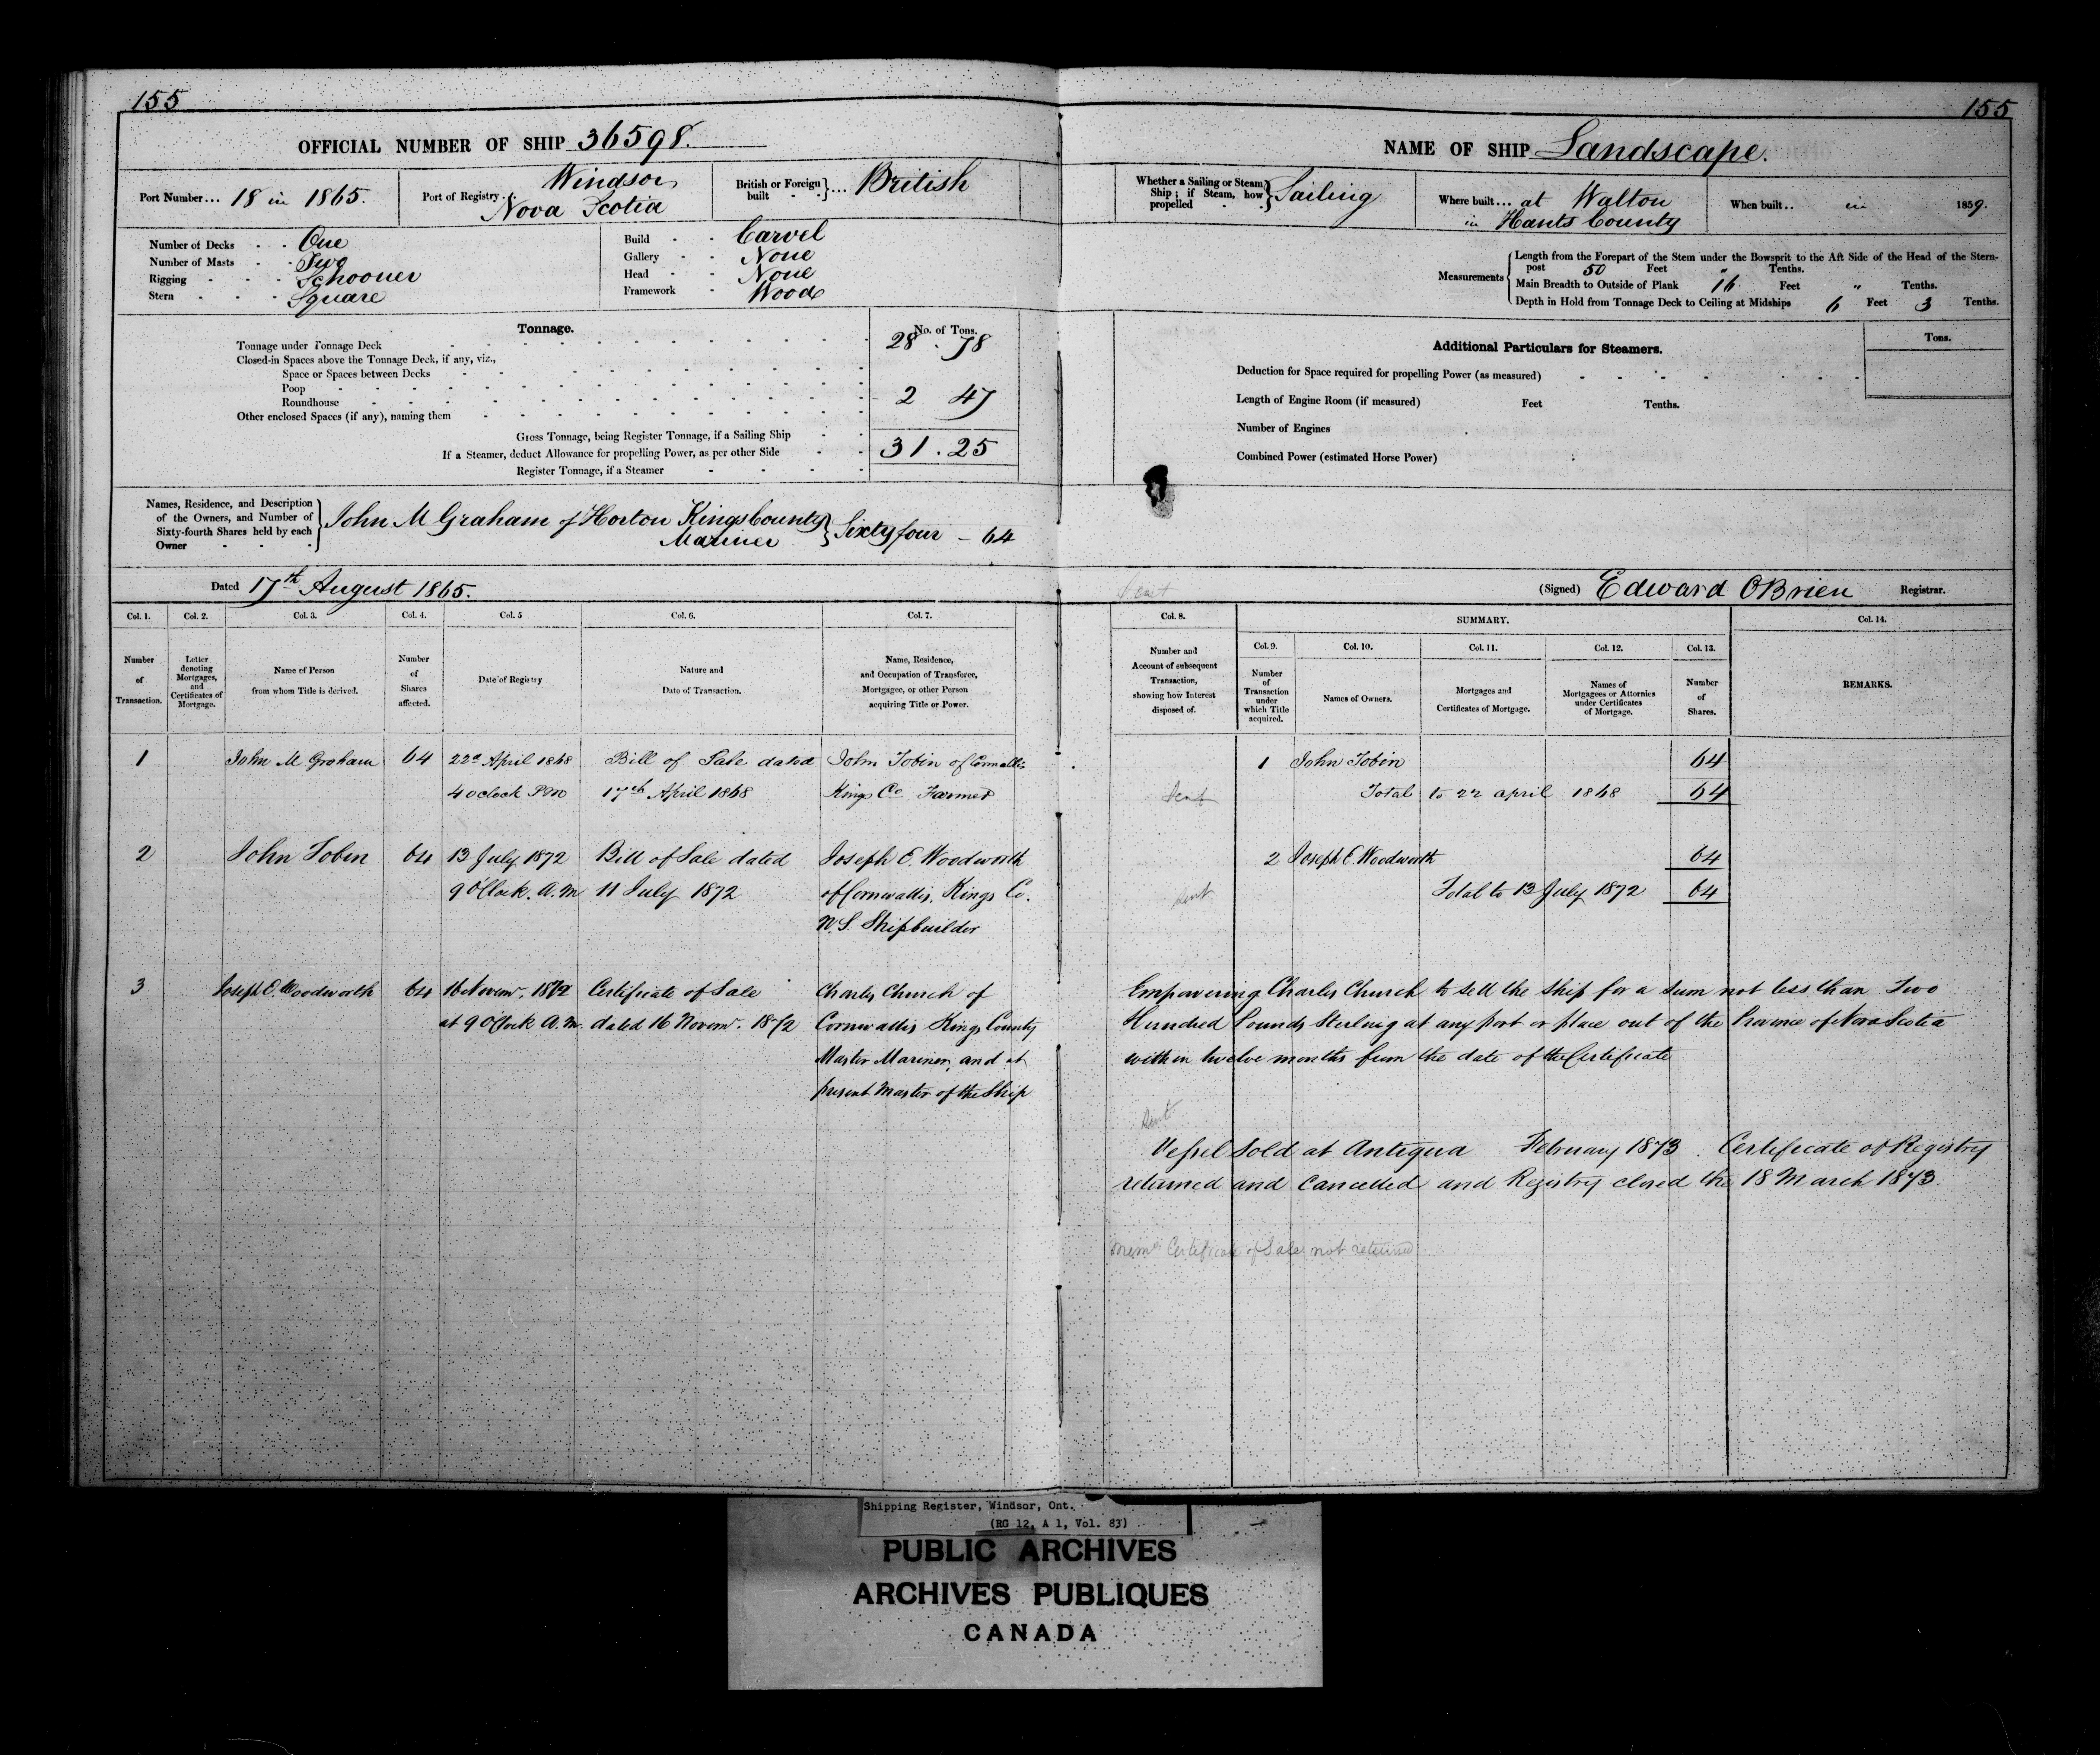 155
155
OFFICIAL NUMBER OF SHIP 36598.
NAME OF SHIP Landscape.
Port Number... 18 in 1865.
Port of Registry. Windsor
Nova Scotia
British or Foreign built ... British
Whether a Sailing or Steam Ship; if Steam, how propelled Sailing
Where built... at Walton
in Hants County
When built.. in 1859.
Number of Decks One
Number of Masts Two
Rigging Schooner
Stern Square
Build Carvel
Gallery None
Head None
Framework Wood
Measurements
Length from the Forepart of the Stem under the Bowsprit to the Aft Side of the Head of the Stern-
post 50 Feet " Tenths.
Main Breadth to Outside of Plank 16 Feet " Tenths.
Depth in Hold from Tonnage Deck to Ceiling at Midships 6 Feet 3 Tenths.
Tonnage.
No. of Tons.
Tonnage under Tonnage Deck 28 . 78
Closed-in Spaces above the Tonnage Deck, if any, viz.,
Space or Spaces between Decks
Poop
Roundhouse 2 47
Other enclosed Spaces (if any), naming them
Gross Tonnage, being Register Tonnage, if a Sailing Ship 31 . 25
If a Steamer, deduct Allowance for propelling Power, as per other Side
Register Tonnage, if a Steamer
Additional Particulars for Steamers.
Tons.
Deduction for Space required for propelling Power (as measured)
Length of Engine Room (if measured) Feet Tenths.
Number of Engines
Combined Power (estimated Horse Power)
Names, Residence, and Description
of the Owners, and Number of
Sixty-fourth Shares held by each
Owner
John M Graham of Horton Kings County
Mariner
Sixty four - 64
Dated 17th August 1865.
(Signed) Edward OBrien Registrar.
Col. 1.
Number
of
Transaction.
Col. 2.
Letter
denoting
Mortgages,
and
Certificates of
Mortgage.
Col. 3.
Name of Person
from whom Title is derived.
Col. 4.
Number
of
Shares
affected.
Col. 5
Date of Registry
Col. 6.
Nature and
Date of Transaction.
Col. 7.
Name, Residence,
and Occupation of Transferee,
Mortgagee, or other Person
acquiring Title or Power.
Col. 8.
Number and
Account of subsequent
Transaction,
showing how Interest
disposed of.
SUMMARY.
Col. 9.
Number
of
Transaction
under
which Title
acquired.
Col. 10.
Names of Owners.
Col. 11.
Mortgages and
Certificates of Mortgage.
Col. 12.
Names of
Mortgagees or Attornies
under Certificates
of Mortgage.
Col. 13.
Number
of
Shares.
Col. 14.
REMARKS.
1 John M Graham 64 22d April 1868 Bill of Sale dated John Tobin of Cornwallis
4 oclock PM 17th April 1868 Kings Co Farmer
1 John Tobin 64
Sent Total to 22 april 1868 64
2 John Tobin 64 13 July 1872 Bill of Sale dated Joseph E. Woodworth
9 O'Clock. A.M 11 July 1872 of Cornwallis, Kings Co.
N.S. Shipbuilder
2 Joseph E. Woodworth 64
Sent Total to 13 July 1872 64
3 Joseph E. Woodworth 64 16 Novemr. 1872 Certificate of Sale Charles Church of
at 9 O'Clock A.M. dated 16 Novemr. 1872 Cornwallis Kings County
Master Mariner, and at
present Master of the Ship
Empowering Charles Church to sell the ship for a sum not less than Two
Hundred Pounds Sterling at any port or place out of the Province of Nova Scotia
within twelve months from the date of the Certificate
Sent
Vessel sold at Antigua February 1873. Certificate of Registry
returned and cancelled and Registry closed the 18 March 1873.
Memo Certificate of Sale not returned
Shipping Register, Windsor, Ont.
(RG 12, A 1, Vol. 83)
PUBLIC ARCHIVES
ARCHIVES PUBLIQUES
CANADA